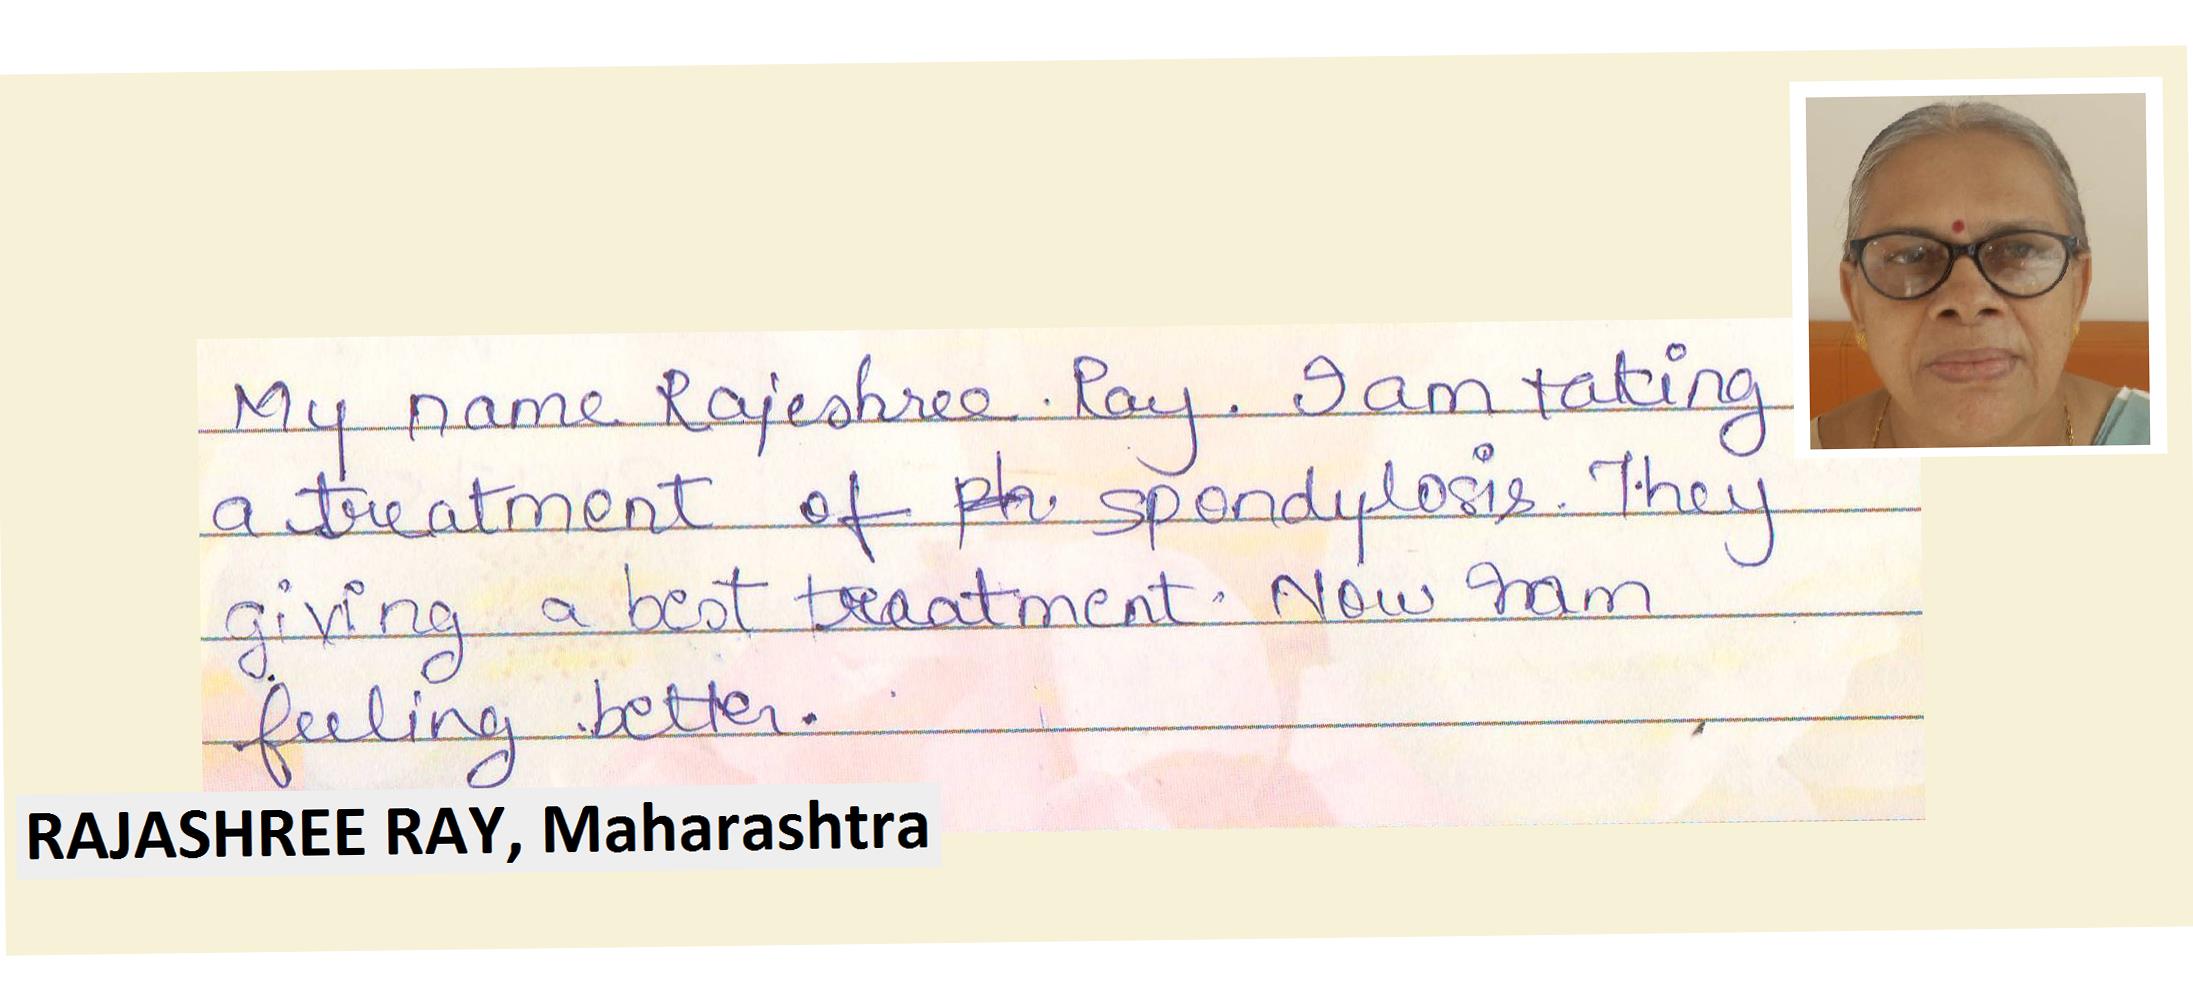 My name Rajeshree. Ray. I am taking
a treatment of spondylosis. They
giving a best treaatment. Now I am
feeling better.
RAJASHREE RAY, Maharashtra